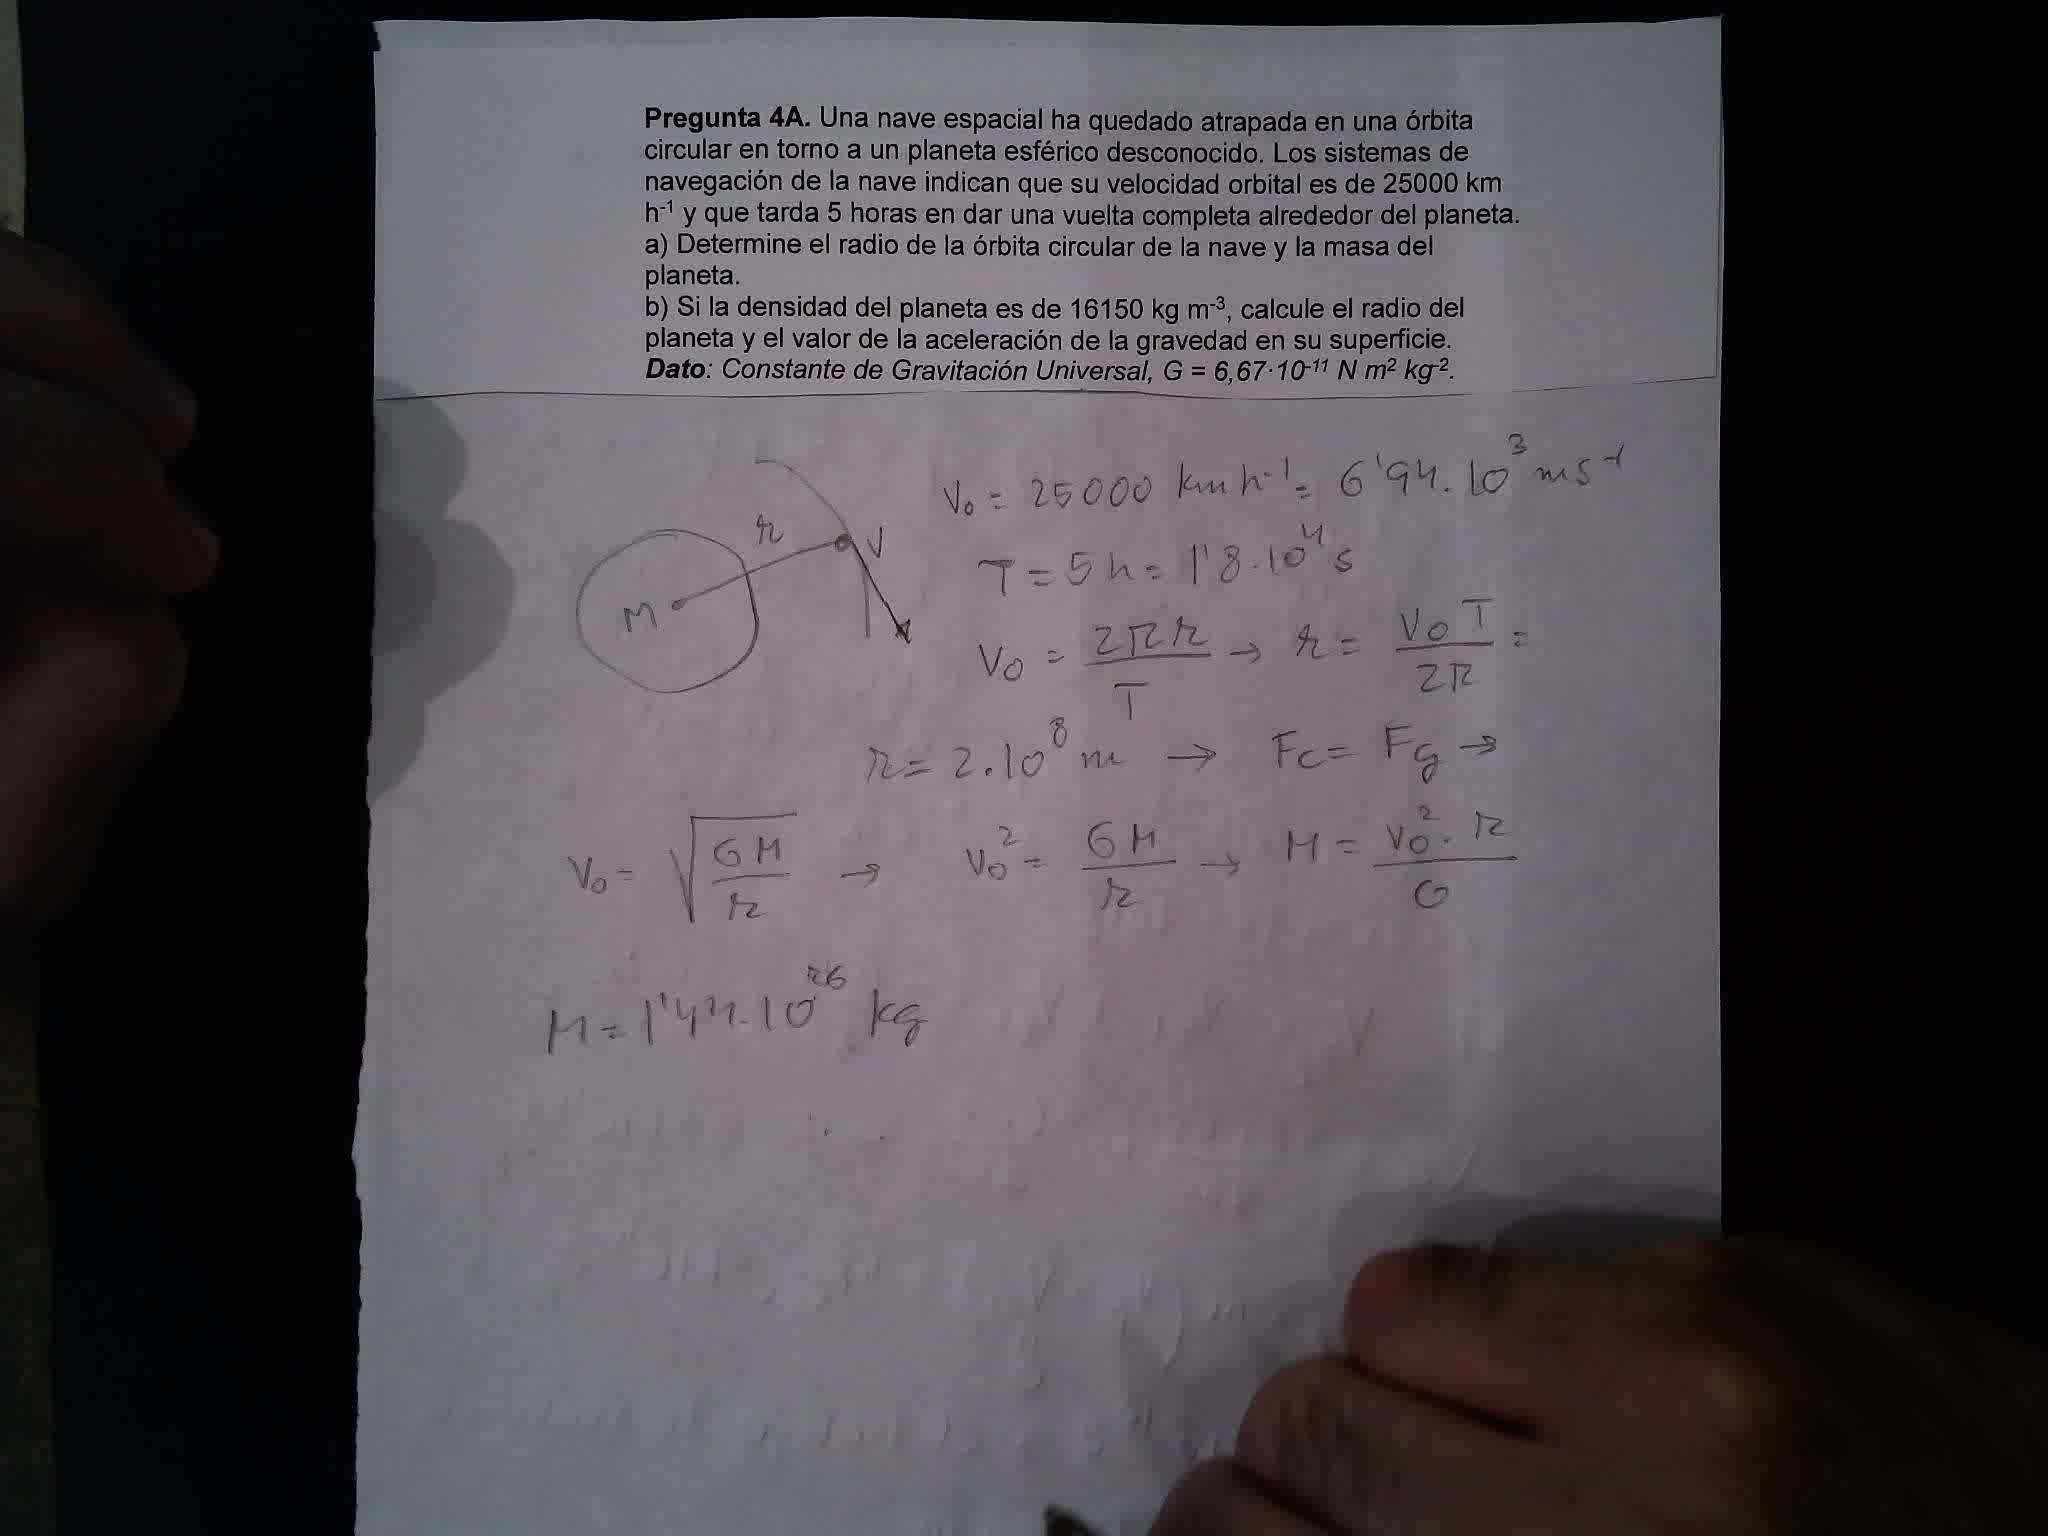 Pregunta 4A. Una nave espacial ha quedado atrapada en una órbita
circular en torno a un planeta esférico desconocido. Los sistemas de
navegación de la nave indican que su velocidad orbital es de 25000 km
h⁻¹ y que tarda 5 horas en dar una vuelta completa alrededor del planeta.
a) Determine el radio de la órbita circular de la nave y la masa del
planeta.
b) Si la densidad del planeta es de 16150 kg m⁻³, calcule el radio del
planeta y el valor de la aceleración de la gravedad en su superficie.
Dato: Constante de Gravitación Universal, G = 6,67·10⁻¹¹ N m² kg⁻².
V₀ = 25000 km h⁻¹ = 6'94.10³ m s⁻¹
r V
M
T = 5h = 1'8.10⁴ s
V₀ = 2πr/T → r = V₀T/2π =
r = 2.10⁸ m → Fc = Fg →
V₀ = √(GM/r) → V₀² = GM/r → M = V₀².r/G
M = 1'44.10²⁶ kg